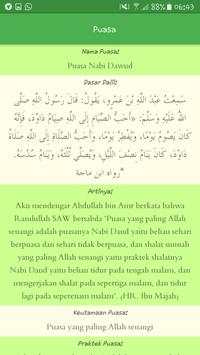 88% 06:43
Puasa
Nama Puasa:
Puasa Nabi Dawud
Dasar Dalil:
سَمِعْتُ عَبْدَ اللَّهِ بْنَ عَمْرٍو، يَقُولُ: قَالَ رَسُولُ اللَّهِ صَلَّى
اللَّهُ عَلَيْهِ وَسَلَّمَ: «أَحَبُّ الصِّيَامِ إِلَى اللَّهِ صِيَامُ دَاوُدَ، فَإِنَّهُ
كَانَ يَصُومُ يَوْمًا، وَيُفْطِرُ يَوْمًا، وَأَحَبُّ الصَّلَاةِ إِلَى اللَّهِ صَلَاةُ
دَاوُدَ، كَانَ يَنَامُ نِصْفَ اللَّيْلِ، وَيُصَلِّي ثُلُثَهُ، وَيَنَامُ سُدُسَهُ.
"رواه ابن ماجة
Artinya:
Aku mendengar Abdullah bin Amr berkata bahwa
Rasulullah SAW bersabda "Puasa yang paling Allah
senangi adalah puasanya Nabi Daud yaitu beliau sehari
berpuasa dan sehari tidak berpuasa, dan shalat sunnah
yang paling Allah senangi yaitu praktek shalatnya
Nabi Daud yaitu beliau tidur pada tengah malam, dan
mengerjakan shalat di sepertiga malam dan beliau
tidur pada seperenam malam". (HR. Ibnu Majah)
Keutamaan Puasa:
Puasa yang paling Allah senangi
Praktek Puasa: